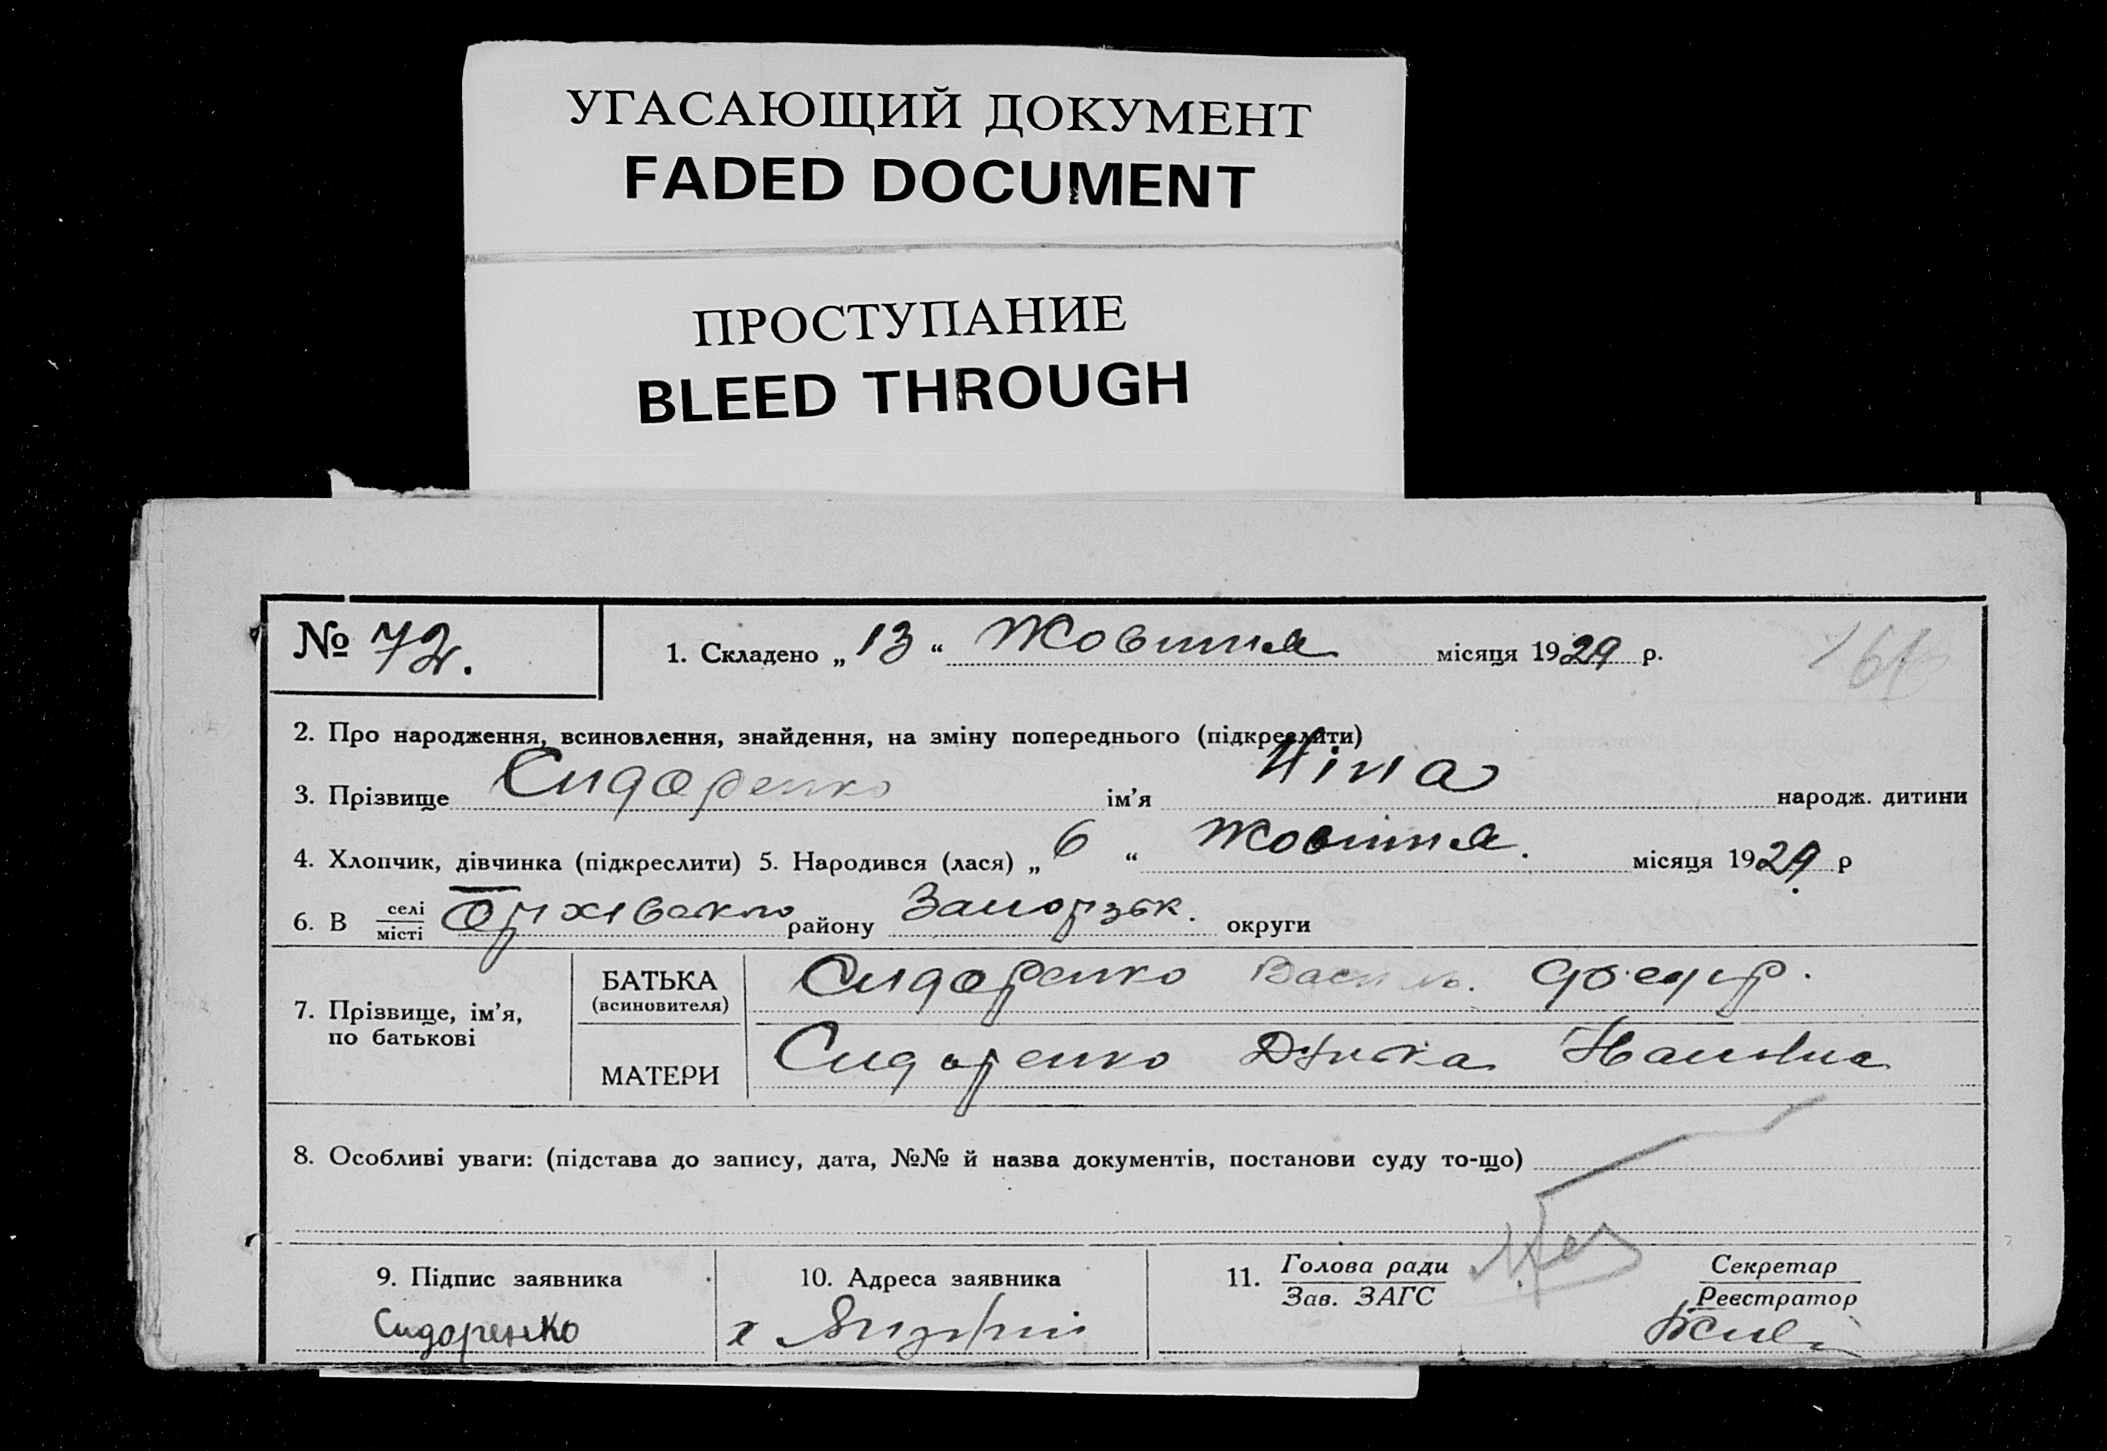 УГАСАЮЩИЙ ДОКУМЕНТ
FADED DOCUMENT
ПРОСТУПАНИЕ
BLEED THROUGH
№ 72.
1. Складено „ 13 “ Жовтня місяця 1929 р.
2. Про народження, всиновлення, знайдення, на зміну попереднього (підкреслити)
3. Прізвище Сидоренко ім’я Ніна народж. дитини
4. Хлопчик, дівчинка (підкреслити) 5. Народився (лася) „ 6 “ Жовтня. місяця 1929 р
6. В селі місті району Запорізьк. округи
7. Прізвище, ім’я, по батькові
БАТЬКА (всиновителя) Сидоренко Василь. Федир.
МАТЕРИ Сидоренко
8. Особливі уваги: (підстава до запису, дата, №№ й назва документів, постанови суду то-що)
9. Підпис заявника
Сидоренко
10. Адреса заявника
х
11. Голова ради
Зав. ЗАГС
Секретар
Реєстратор